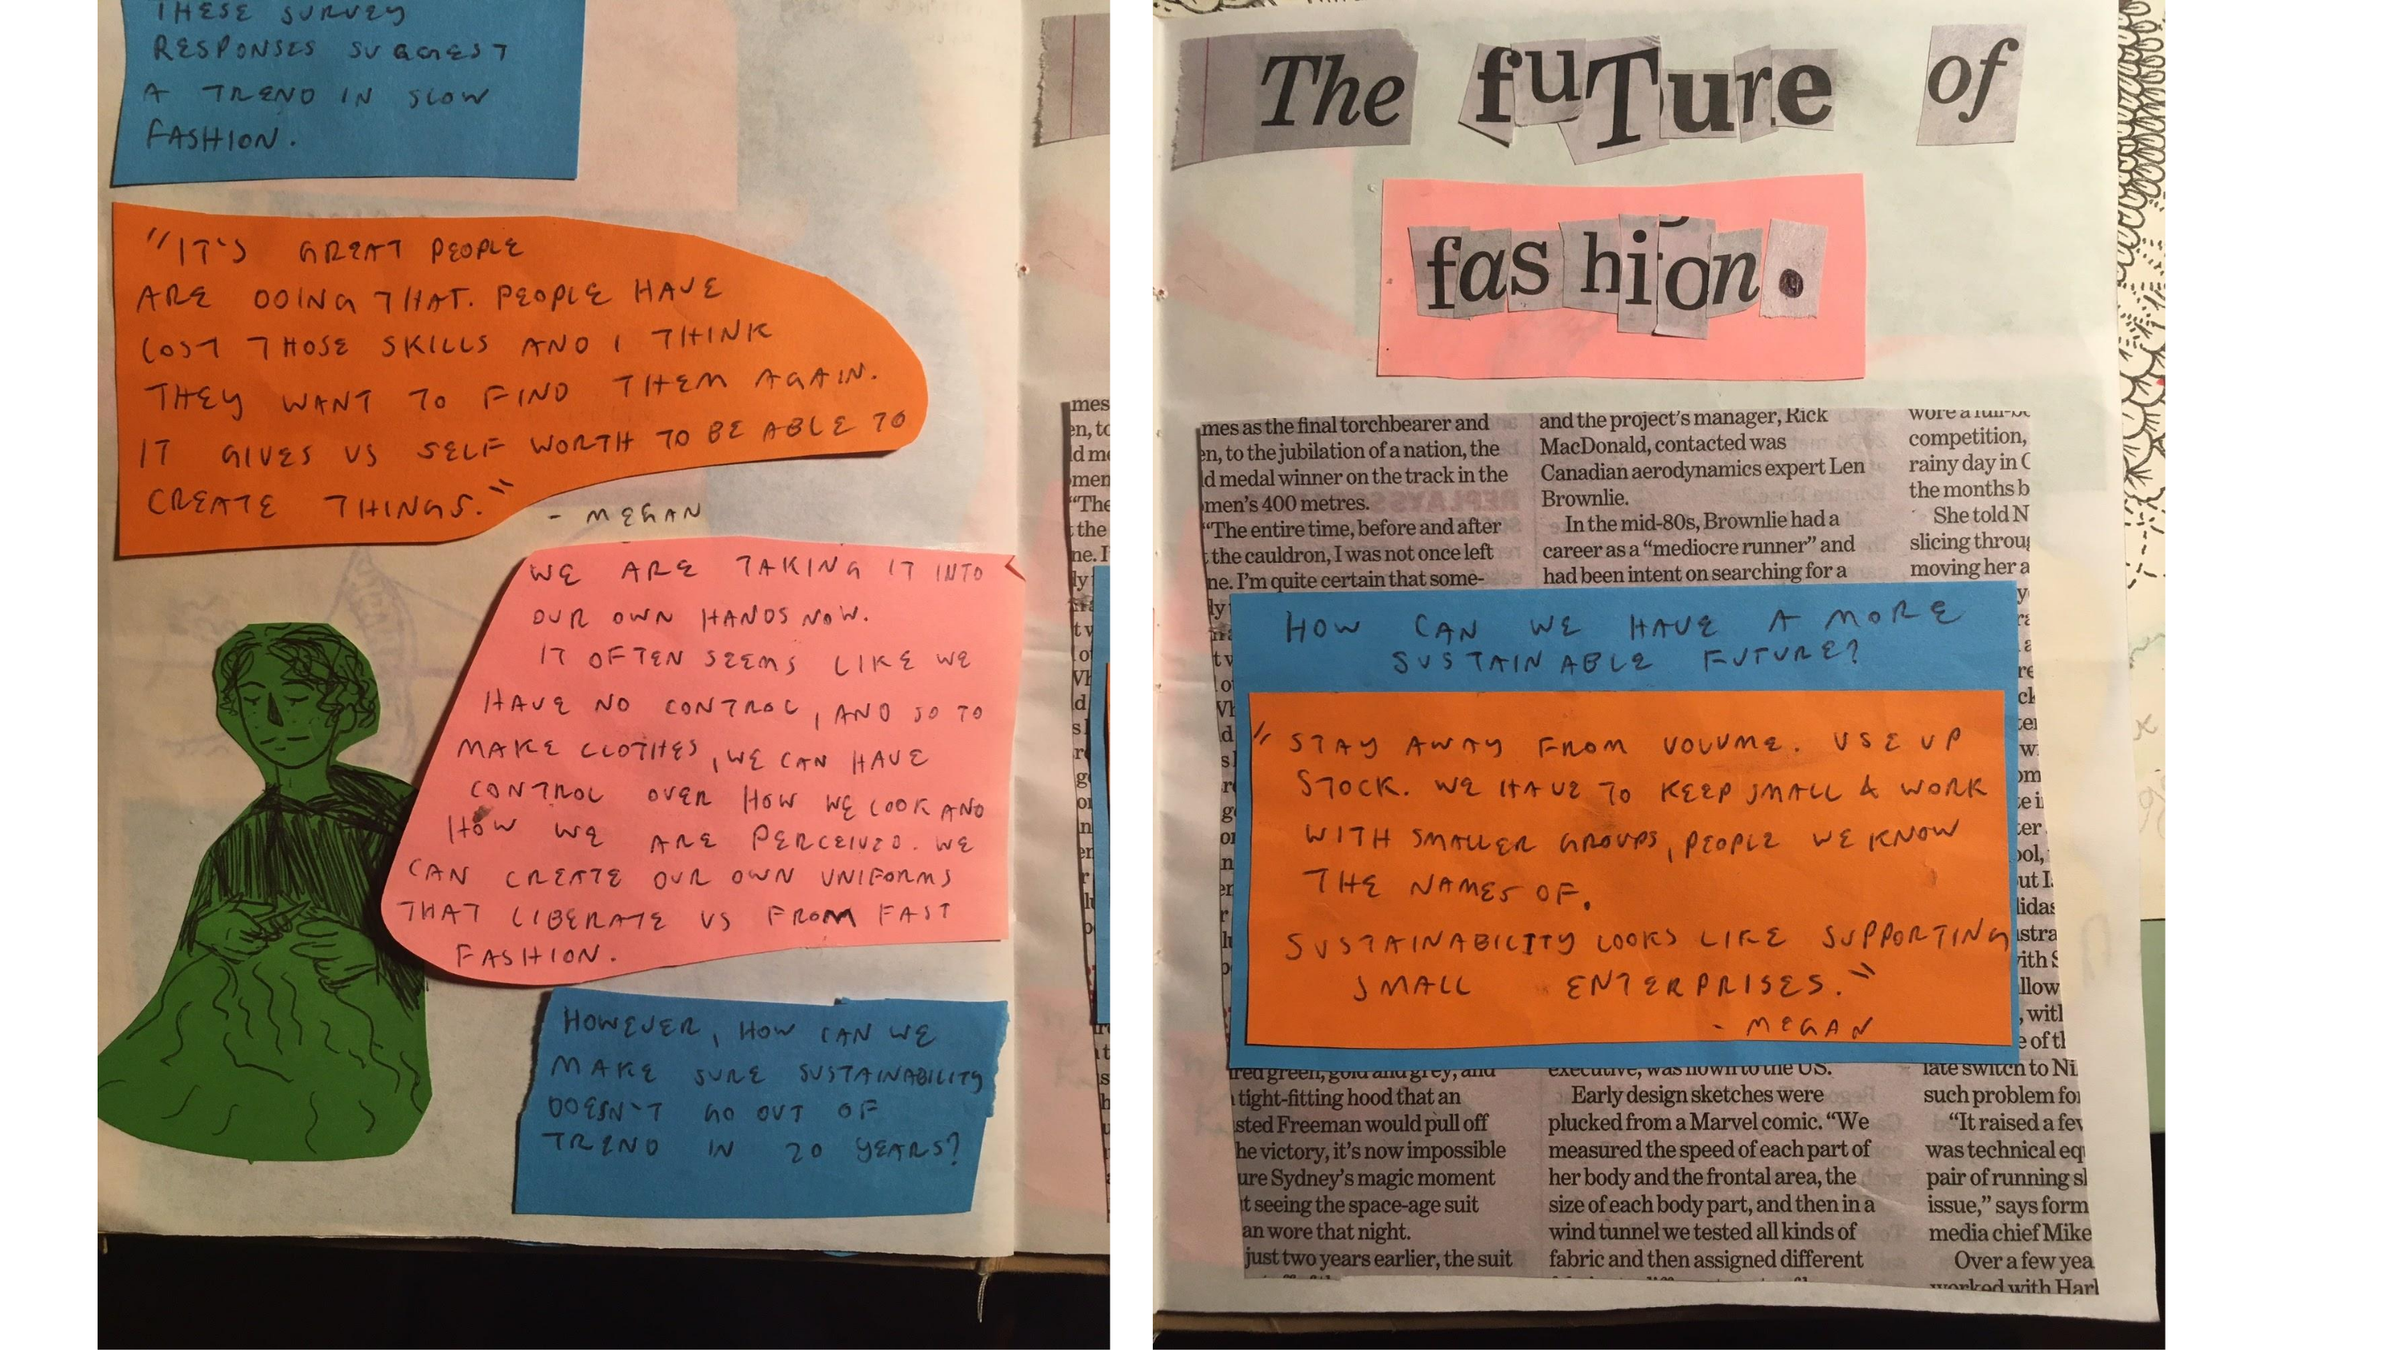 THESE SURVEY
RESPONSES SUGGEST
A TREND IN SLOW
FASHION.
"IT'S GREAT PEOPLE
ARE DOING THAT. PEOPLE HAVE
LOST THOSE SKILLS AND I THINK
THEY WANT TO FIND THEM AGAIN.
IT GIVES US SELF WORTH TO BE ABLE TO
CREATE THINGS."
- MEGAN
WE ARE TAKING IT INTO
OUR OWN HANDS NOW.
IT OFTEN SEEMS LIKE WE
HAVE NO CONTROL, AND SO TO
MAKE CLOTHES, WE CAN HAVE
CONTROL OVER HOW WE LOOK AND
HOW WE ARE PERCEIVED. WE
CAN CREATE OUR OWN UNIFORMS
THAT LIBERATE US FROM FAST
FASHION.
HOWEVER, HOW CAN WE
MAKE SURE SUSTAINABILITY
DOESN'T GO OUT OF
TREND IN 20 YEARS?
The fuTure of
fashion.
mes as the final torchbearer and
en, to the jubilation of a nation, the
d medal winner on the track in the
men's 400 metres.
"The entire time, before and after
the cauldron, I was not once left
ne. I'm quite certain that some-
and the project's manager, Rick
MacDonald, contacted was
Canadian aerodynamics expert Len
Brownlie.
In the mid-80s, Brownlie had a
career as a "mediocre runner" and
had been intent on searching for a
wore a full-
competition,
rainy day in
the months b
She told N
slicing throug
moving her a
HOW CAN WE HAVE A MORE
SUSTAINABLE FUTURE?
"STAY AWAY FROM VOLUME. USE UP
STOCK. WE HAVE TO KEEP SMALL & WORK
WITH SMALLER GROUPS, PEOPLE WE KNOW
THE NAMES OF.
SUSTAINABILITY LOOKS LIKE SUPPORTING
SMALL ENTERPRISES."
- MEGAN
red green, gold and grey, and
tight-fitting hood that an
sted Freeman would pull off
he victory, it's now impossible
ure Sydney's magic moment
t seeing the space-age suit
an wore that night.
just two years earlier, the suit
executive, was flown to the US.
Early design sketches were
plucked from a Marvel comic. "We
measured the speed of each part of
her body and the frontal area, the
size of each body part, and then in a
wind tunnel we tested all kinds of
fabric and then assigned different
late switch to Ni
such problem fo
"It raised a fev
was technical eq
pair of running sl
issue," says form
media chief Mike
Over a few yea
worked with Harl